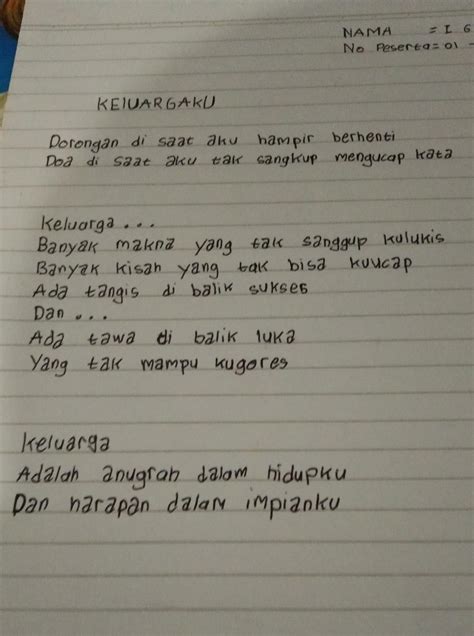 NAMA = I G
No Peserta = 01 -
KElUARGAKU
Dorongan di saat aku hampir berhenti
Doa di saat aku tak sangkup mengucap kata
Keluarga . . .
Banyak makna yang tak sanggup kulukis
Banyak kisah yang tak bisa kuucap
Ada tangis di balik sukses
Dan . . .
Ada tawa di balik luka
Yang tak mampu kugores
Keluarga
Adalah anugrah dalam hidupku
Dan harapan dalam impianku